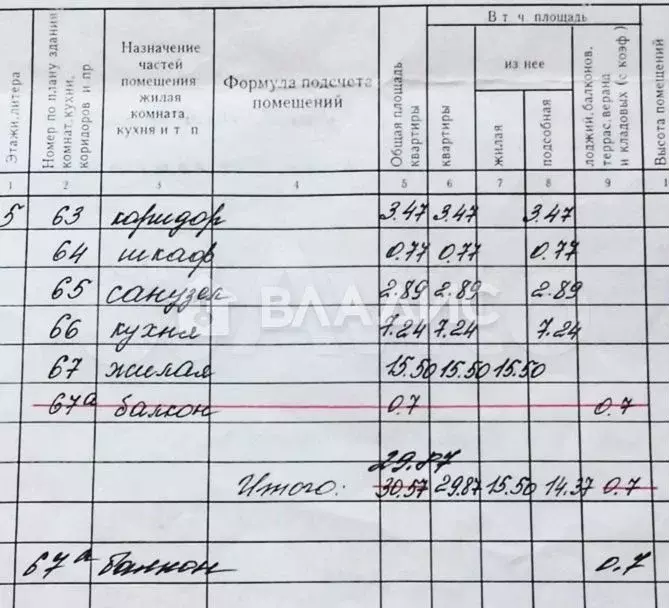 В т ч площадь
Этажи,литера
Номер по плану здания комнат,кухни, коридоров и пр
Назначение частей помещения жилая комната, кухня и т п
Формула подсчета помещений
Общая площадь квартиры
квартиры
из нее
жилая
подсобная
лоджий,балконов, террас,веранд и кладовых (с коэф)
Высота помещений
1 2 3 4 5 6 7 8 9 1
5 63 коридор 3.47 3.47 3.47
64 шкаф 0.77 0.77 0.77
65 санузел 2.89 2.89 2.89
ВЛАДИС
66 кухня 7.24 7.24 7.24
67 жилая 15.50 15.50 15.50
67а балкон 0.7 0.7
29.87
Итого: 30.57 29.87 15.50 14.37 0.7
67а балкон 0.7